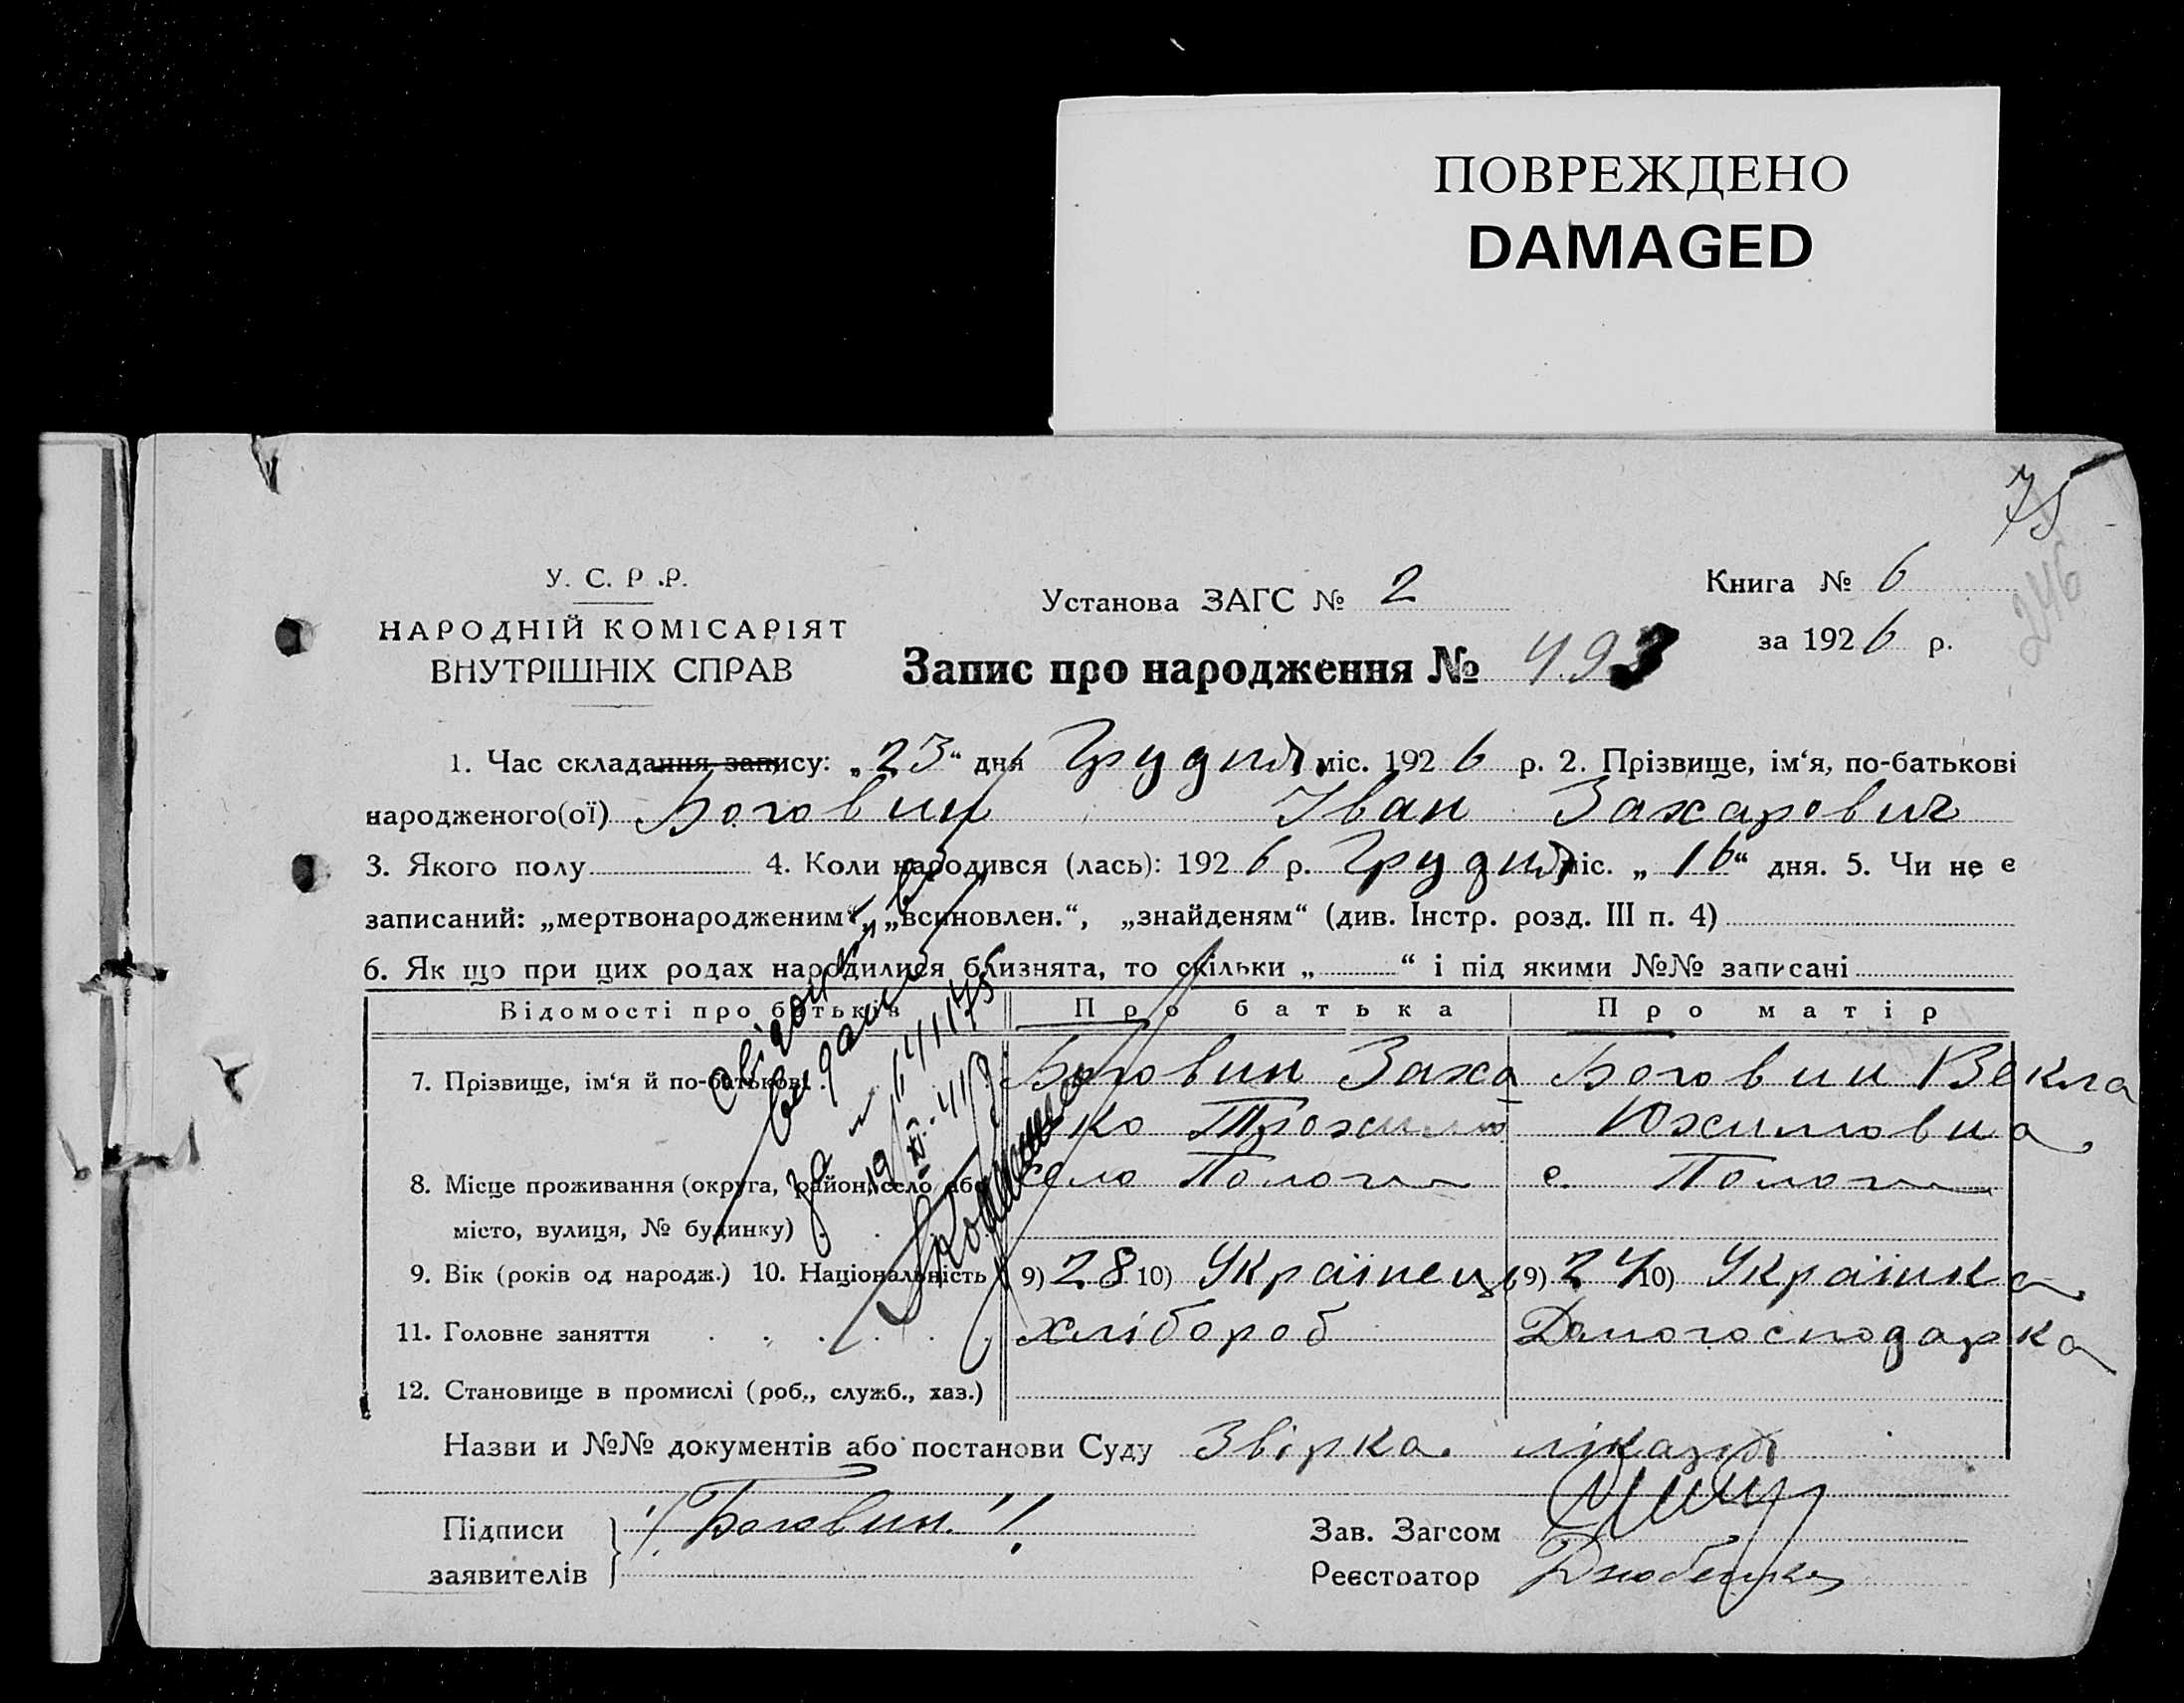 ПОВРЕЖДЕНО
DAMAGED
75
246
У. С. Р .Р.
НАРОДНІЙ КОМІСАРІЯТ
ВНУТРІШНІХ СПРАВ
Установа ЗАГС № 2
Книга № 6
за 1926 р.
Запис про народження № 493
1. Час складання запису: „23“ дня Грудня міс. 1926 р. 2. Прізвище, ім‘я, по-батькові
народженого(ої) Боговин Іван Захарович
3. Якого полу 4. Коли народився (лась): 1926 р. Грудня міс. „16“ дня. 5. Чи не є
записаний: „мертвонародженим“, „всиновлен.“, „знайденям“ (див. Інстр. розд. III п. 4)
6. Як що при цих родах народилися близнята, то скільки „ “ і під якими №№ записані
Відомості про батьків Про батька Про матір
7. Прізвище, ім‘я й по-батькові . Боговин Заха Боговин Векла
ко Трохим Юхимовна
8. Місце проживання (округа, район, село або село Пологи с. Пологи
місто, вулиця, № будинку)
9. Вік (років од народж.) 10. Національність 9) 28 10) Українець 9) 24 10) Українка
11. Головне заняття хлібороб Домогосподарка
12. Становище в промислі (роб., служб., хаз.)
Назви и №№ документів або постанови Суду Звірка лікаря
Підписи заявителів Боговин
Зав. Загсом
Реєстратор